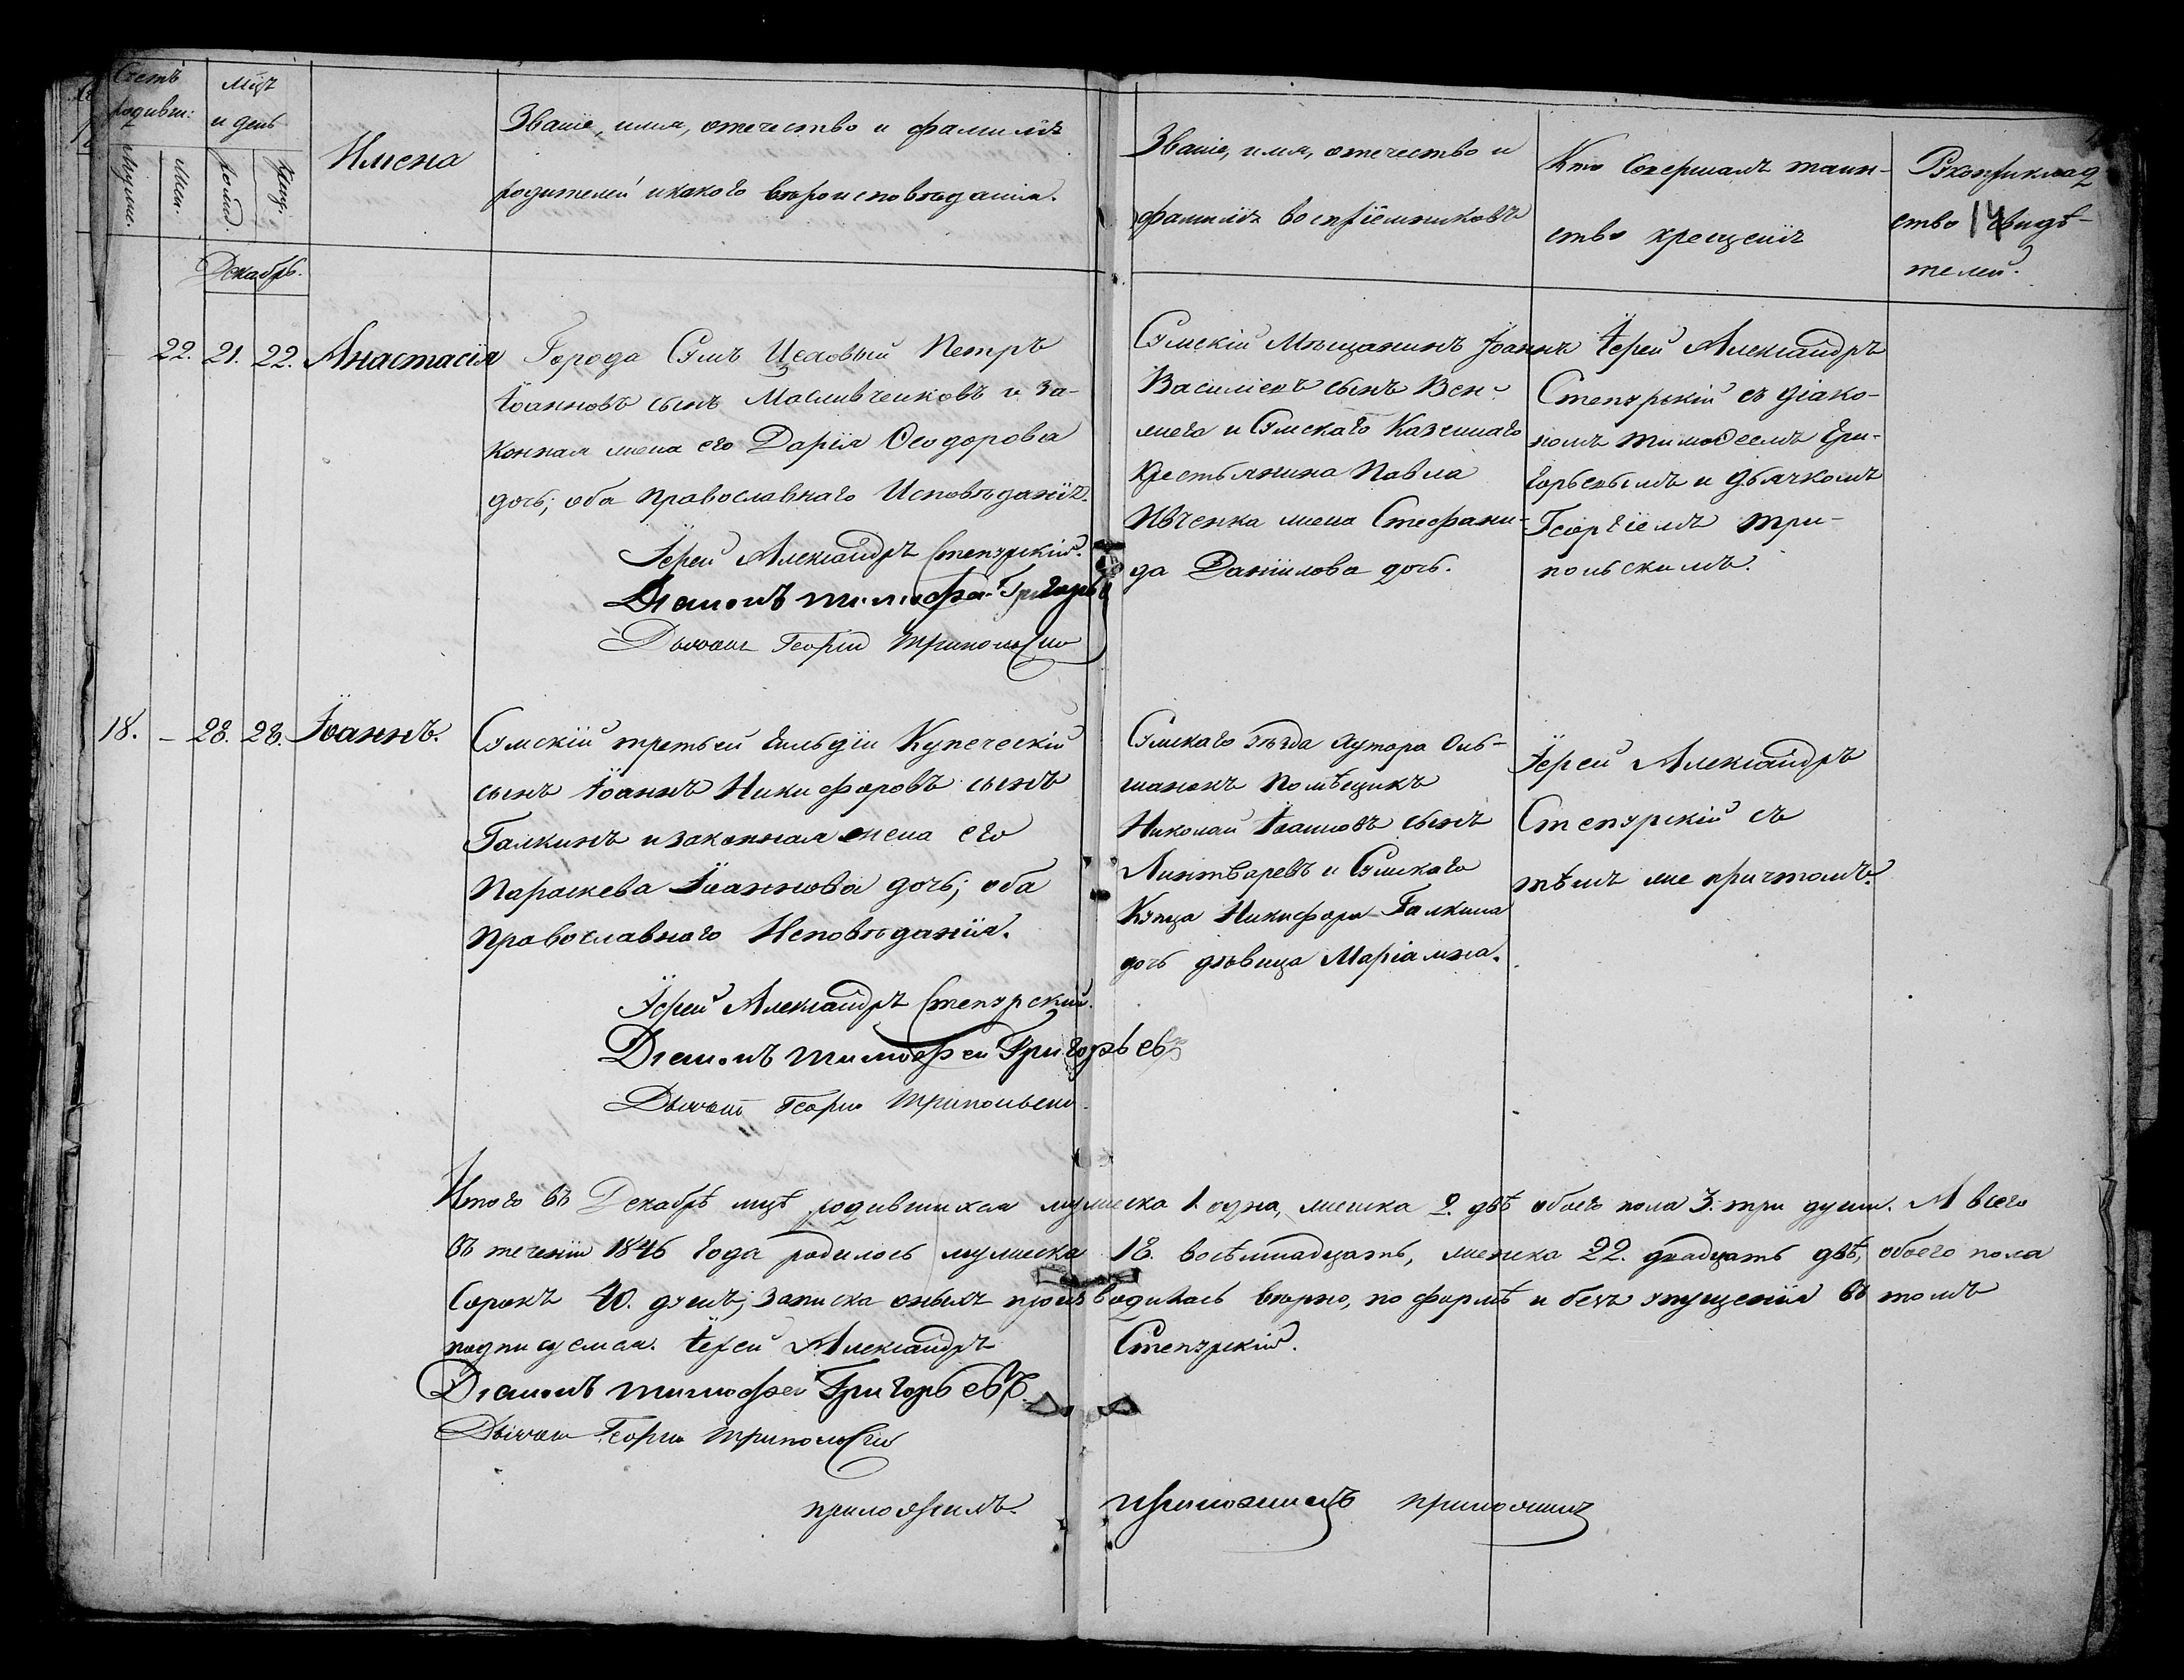 Счетъ
родивш:
Муже.
Жен.
мцъ
и день
рожд.
крещ.
Имена
Званіе, имя, отечество и фамилія
родителей и какого вѣроисповѣданія.
Званіе, имя, отечество и
фамилія воспріемниковъ
Кто совершалъ таин-
ство крещенія
Рукоприклад
ство свидѣ-
телей.
14
Декабрь.
22. 21. 22. Анастасія
Города Сумъ Цеховый Петръ
Іоанновъ сынъ Масливченковъ и за-
конная жена его Дарія Ѳеодорова
дочь; оба Православнаго Исповѣданія.
Іерей Александръ Степурскій.
Діаконъ Тимофей Григорьев
Дьячокъ Георгій Трипольскій
Сумскій Мѣщанинъ Іоаннъ
Василіевъ сынъ
и Сумскаго Казеннаго
Крестьянина Павла
Ивченка жена Стефани-
да Даніилова дочь.
Іерей Александръ
Степурскій съ діако-
номъ Тимоѳеемъ Гри-
горьевымъ и дьячкомъ
Георгіемъ Три-
польскимъ.
18. – 28. 28. Іоаннъ.
Сумскій третьей гильдіи Купеческій
сынъ Іоаннъ Никифоровъ сынъ
Галкинъ и законная жена его
Параскева Іоаннова дочь; оба
Православнаго Исповѣданія.
Іерей Александръ Степурскій.
Діаконъ Тимофей Григорьевъ
Дьячокъ Георгій Трипольскій
Сумскаго уѣзда хутора Оль-
шанокъ Помѣщикъ
Николай Іоанновъ сынъ
Линтваревъ и Сумскаго
Купца Никифора Галкина
дочь дѣвица Маріамна.
Іерей Александръ
Степурскій съ
тѣмъ же причтомъ.
Итого въ Декабрѣ мцѣ родившихся мужеска 1. одна, женска 2. двѣ обоего пола 3. три души. А всего
въ теченіи 1846 года родилось мужеска 18. восѣмнадцать, женска 22. двадцать двѣ, обоего пола
сорокъ 40. душъ; записка оныхъ производилась вѣрно, по формѣ и безъ упущенія въ томъ
подписуемся. Іерей Александръ Степурскій.
Діаконъ Тимофей Григорьевъ.
Дьячокъ Георгій Трипольскій
приложилъ. приложилъ приложилъ